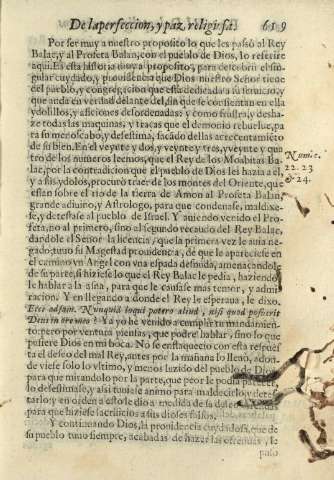 De la perfeccion, y paz religiosa. 659
Por ser muy a nuestro proposito lo que les passò al Rey
Balac, y al Profeta Balan, con el pueblo de Dios, lo referire
aqui. Es esta historia a proposito, para descubrir el sin-
gular cuydado, y prouidencia que Dios nuestro Señor tiene
del pueblo, y congregacion que està dedicada a su seruicio, y
que anda en verdad delante del, sin que se consientan en ella
ydolillos, y aficiones desordenadas: y como frustra, y desha-
ze todas las maquinas, y traças que el demonio rebuelue, pa
ra su menoscabo, y desestima, sacado dellas acrecentamiēto
de su bien. En el veynte y dos, y veynte y tres, y veynte y qua
tro de los numeros leemos, que el Rey de los Moabitas Ba-
lac, por la contradicion que el pueblo de Dios les hazia a el,
y a sus ydolos, procurò traer de los montes del Oriente, que
estan sobre el rio de la tierra de Amon al Profeta Balan,
grande adiuino, y Astrologo, para que condenase, maldixe-
se, y detestase al pueblo de Israel. Y auiendo venido el Pro-
feta, no al primero, sino al segundo recaudo del Rey Balac,
dandole el Señor la licencia, que la primera vez le auia ne-
gado; tuuo su Magestad prouidencia, de que le apareciese en
el camino vn Angel con vna espada desnuda, amenaçandole
de su parte, si hiziese lo que el Rey Balac le pedia, haziendo
le hablar a la asna, para que le causase mas temor, y admi-
racion. Y en llegando a donde el Rey le esperaua, le dixo.
Ecce adsum. Nunquid loqui potero aliud, nisi quod posuerit
Deus in ore meo? Ya yo he venido a cumplir tu mandamien-
to: pero por ventura piensas, que podre hablar, sino lo que
pusiere Dios en mi boca. No se enflaqueciò con esta respues
ta el deseo del mal Rey, antes por la mañana lo lleuò, adon-
de viese solo lo vltimo, y menos luzido del pueblo de Dios,
para que mirandolo por la parte, que peor le podia parecer,
lo desestimase, y asi tuuiese animo para maldecirlo, y detes-
tarlo; y en orden a esto le dio a medida de su deseo
para que hiziese sacrificios a sus dioses falsos.
Y continuando Dios, la prouidencia cuydadosa, que de
su pueblo tuuo siempre, acabadas de hazer las ofrendas, le
paso
Numic.
22. 23
& 24.